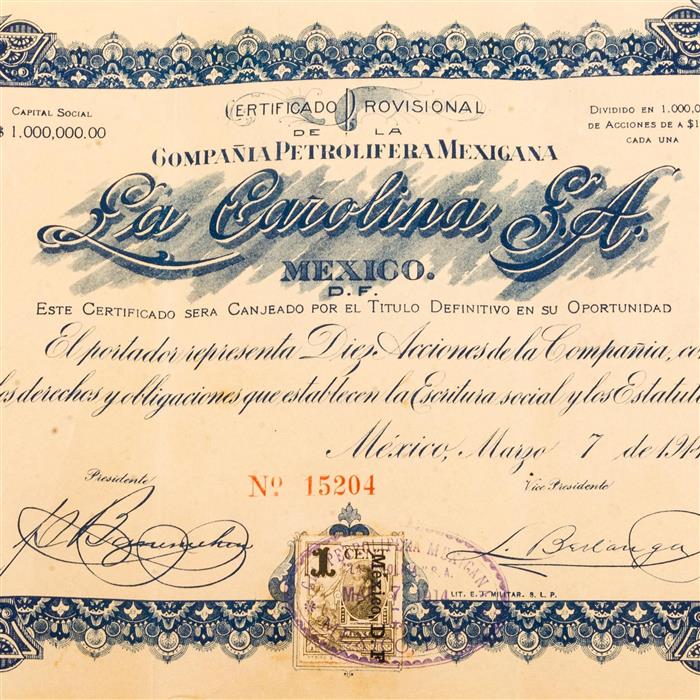 CERTIFICADO PROVISIONAL
CAPITAL SOCIAL
$ 1.000,000.00
DIVIDIDO EN 1.000,0
DE ACCIONES DE A $1
CADA UNA
DE LA
COMPAÑIA PETROLIFERA MEXICANA
La Carolina, S.A.
MEXICO.
D.F.
ESTE CERTIFICADO SERA CANJEADO POR EL TITULO DEFINITIVO EN SU OPORTUNIDAD
El portador representa Diez Acciones de la Compañia, co
los derechos y obligaciones que establecen la Escritura social y los Estatut
México, Marzo 7 de 191
Presidente
Nº 15204
Vice Presidente
L. Berlanga
1 CEN
México, D F
PETROLIFERA MEXICAN
S.A.
MA 7 1914
LIT. E. J. MILITAR. S. L. P.